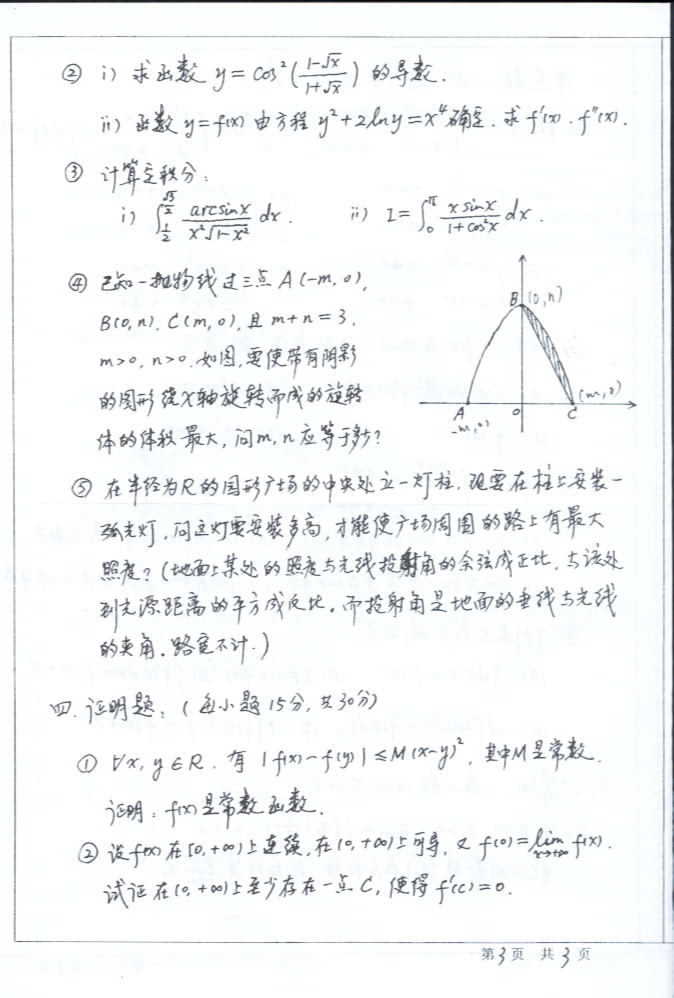 ② i) 求函数 y = cos²(\frac{1-√x}{1+√x}) 的导数.
ii) 函数 y=f(x) 由方程 y²+2lny=x⁴ 确定. 求 f'(x). f''(x).
③ 计算定积分:
i) ∫_{\frac{1}{2}}^{\frac{√3}{2}} \frac{arcsinx}{x²√(1-x²)} dx. ii) I=∫_0^π \frac{x sinx}{1+cos²x} dx.
④ 已知一抛物线过三点 A(-m, 0),
B(0, n). C(m, 0), 且 m+n=3.
m>0, n>0. 如图, 要使带有阴影
的图形绕 x 轴旋转而成的旋转
体的体积最大, 问 m, n 应等于多少?
B (0, n)
A O C (m, 0)
-m, 0)
⑤ 在半径为R的圆形广场的中央处立一灯柱. 现要在柱上安装一
弧光灯, 问这灯要安装多高, 才能使广场周围的路上有最大
照度? (地面上某处的照度与光线投射角的余弦成正比, 与该处
到光源距离的平方成反比. 而投射角是地面的垂线与光线
的夹角. 路宽不计.)
四. 证明题: (每小题15分, 共30分)
① ∀x, y∈R. 有 |f(x)-f(y)|≤M(x-y)², 其中M是常数.
证明: f(x)是常数函数.
② 设f(x)在[0, +∞)上连续, 在(0, +∞)上可导, 又 f(0)=lim_{x→+∞} f(x).
试证在(0, +∞)上至少存在一点 C, 使得 f'(c)=0.
第3页 共3页